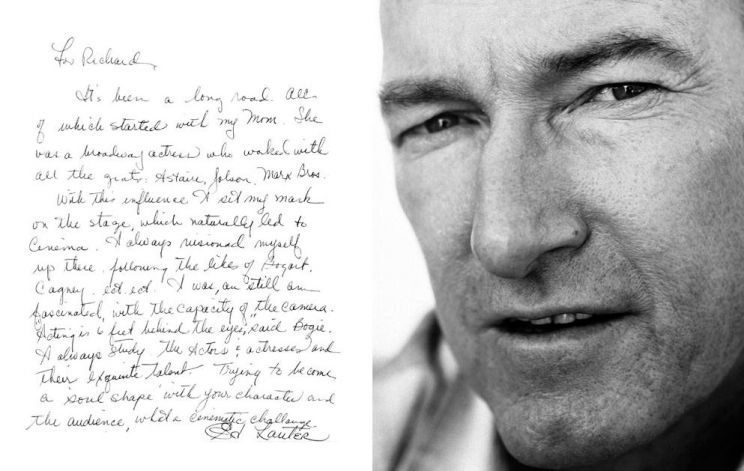 For Richard,
It's been a long road. All
of which started with my Mom. She
was a broadway actress who worked with
all the greats: Astaire, Jolson, Marx Bros.
With this influence I set my mark
on the stage, which naturally led to
Cinema. I always visioned myself
up there following the likes of Bogart,
Cagney. ect. ect. I was, an still am
fascinated, with the capacity of "the camera.
Acting is 6 feet behind the eyes," said Bogie.
I always study the Actors & actresses and
their exquisite talent. Trying to become
a 'soul shape' with your character and
the audience, what a cinematic challenge.
Ed Lauter